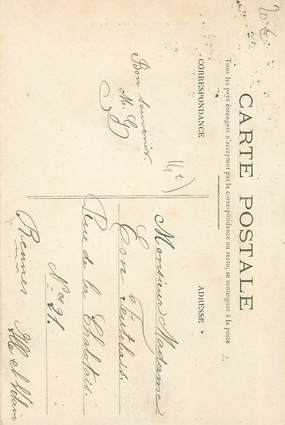 CARTE POSTALE
Tous les pays étrangers n'acceptent pas la correspondance au recto, se renseigner à la poste
CORRESPONDANCE
ADRESSE
Bon souvenir
M. G
Monsieur Madame
Rue de la Chalotais.
N° 21.
Rennes
Ille et Vilaine